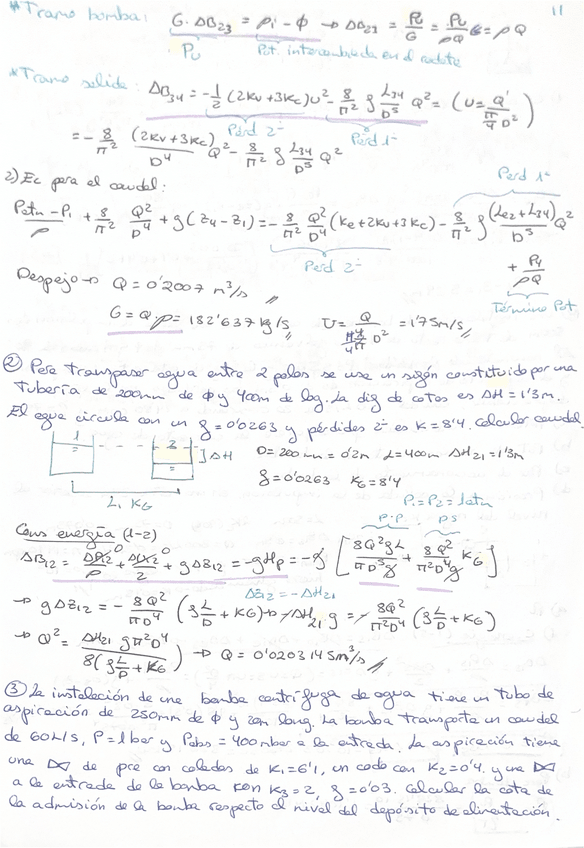 11
*Tramo bomba: G·ΔB₂₃ = ρi - ϕ → ΔB₂₃ = Pu/G = Pu/ρQ G = ρQ
Pu Pot. intercambiada en el rodete
*Tramo salida: ΔB₃₄ = -1/2 (2Kv+3Kc)U² - 8/π² ʄ L₃₄/D⁵ Q² = (U = Q/(π/4 D²))
Pérd 2ª Pérd 1ª
= - 8/π² (2Kv+3Kc)/D⁴ Q² - 8/π² ʄ L₃₄/D⁵ Q²
2) Ec para el caudal:
Pérd 1ª
(Patm - P₁)/ρ + 8/π² Q²/D⁴ + g(z₄ - z₁) = - 8/π² Q²/D⁴ (Ke+2Kv+3Kc) - 8/π² ʄ (Le₂+L₃₄)/D⁵ Q²
Pérd 2ª + Pu/ρQ
Término Pot
Despejo → Q = 0'2007 m³/s
G = Q·ρ = 182'637 kg/s U = Q/(π/4 D²) = 1'75m/s
② Para transpasar agua entre 2 polos se usa un sifón constituido por una
tubería de 200mm de ϕ y 400m de log. La dif de cotas es ΔH = 1'3m.
El agua circula con un ʄ = 0'0263 y pérdidas 2ª es K = 8'4. Calcular caudal.
1 2 ΔH D = 200mm = 0'2m L = 400m ΔH₂₁ = 1'3m
L, K_G ʄ = 0'0263 K_G = 8'4
P₁ = P₂ = 1atm
Cons energía (1-2) p.p. ps
ΔB₁₂ = ΔP₁₂/ρ + ΔU₁₂²/2 + gΔz₁₂ = -gHp = -g [8Q²ʄL/π²D⁵g + 8Q²/π²D⁴g K_G]
Δz₁₂ = -ΔH₂₁
→ gΔz₁₂ = - 8Q²/π²D⁴ (ʄ L/D + K_G) → -ΔH₂₁ g = - 8Q²/π²D⁴ (ʄ L/D + K_G)
→ Q² = ΔH₂₁ gπ²D⁴/8(ʄ L/D + K_G) → Q = 0'0203145m³/s
③ La instalación de una bomba centrífuga de agua tiene un tubo de
aspiración de 250mm de ϕ y 20m long. La bomba transporta un caudal
de 60L/s, P = 1bar y Pabs = 400mbar a la entrada. La aspiración tiene
una ⋈ de pie con colador de K₁=6'1, un codo con K₂=0'4 y una ⋈
a la entrada de la bomba con K₃=2, ʄ=0'03. Calcular la cota de
la admisión de la bomba respecto al nivel del depósito de alimentación.